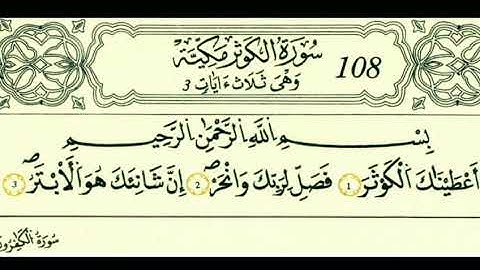 سُورَةُ الْكَوْثَرِ مَكِّيَّةٌ
108
وَهِيَ ثَلَاثُ ءَايَاتٍ 3
بِسْمِ اللَّهِ الرَّحْمَٰنِ الرَّحِيمِ
أَعْطَيْنَاكَ الْكَوْثَرَ 1 فَصَلِّ لِرَبِّكَ وَانْحَرْ 2 إِنَّ شَانِئَكَ هُوَ الْأَبْتَرُ 3
سُورَةُ الْكَافِرُونَ